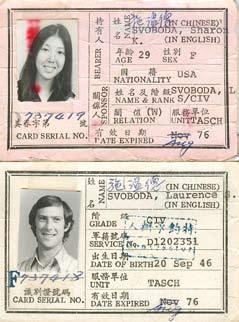 姓名 NAME
(IN CHINESE)
SVOBODA, Sharon
K. (IN ENGLISH)
BEARER
年齡 AGE 29 性別 SEX F
國籍 USA
SPONSOR
姓名及階級 SVOBODA, L
NAME & RANK S/CIV
關係 (W) 服務單位
RELATION UNIT TASCH
有效日期 Nov 76
DATE EXPIRED Aug
737419
CARD SERIAL NO.
姓名 NAME
(IN CHINESE)
SVOBODA, Laurence
(IN ENGLISH)
階級
GRADE CIV
軍籍號碼
SERVICE NO. D1202351
出生日期
DATE OF BIRTH 20 Sep 46
服務單位
UNIT TASCH
有效日期 Nov 76
DATE EXPIRED Aug
F737418
識別證號碼
CARD SERIAL NO.